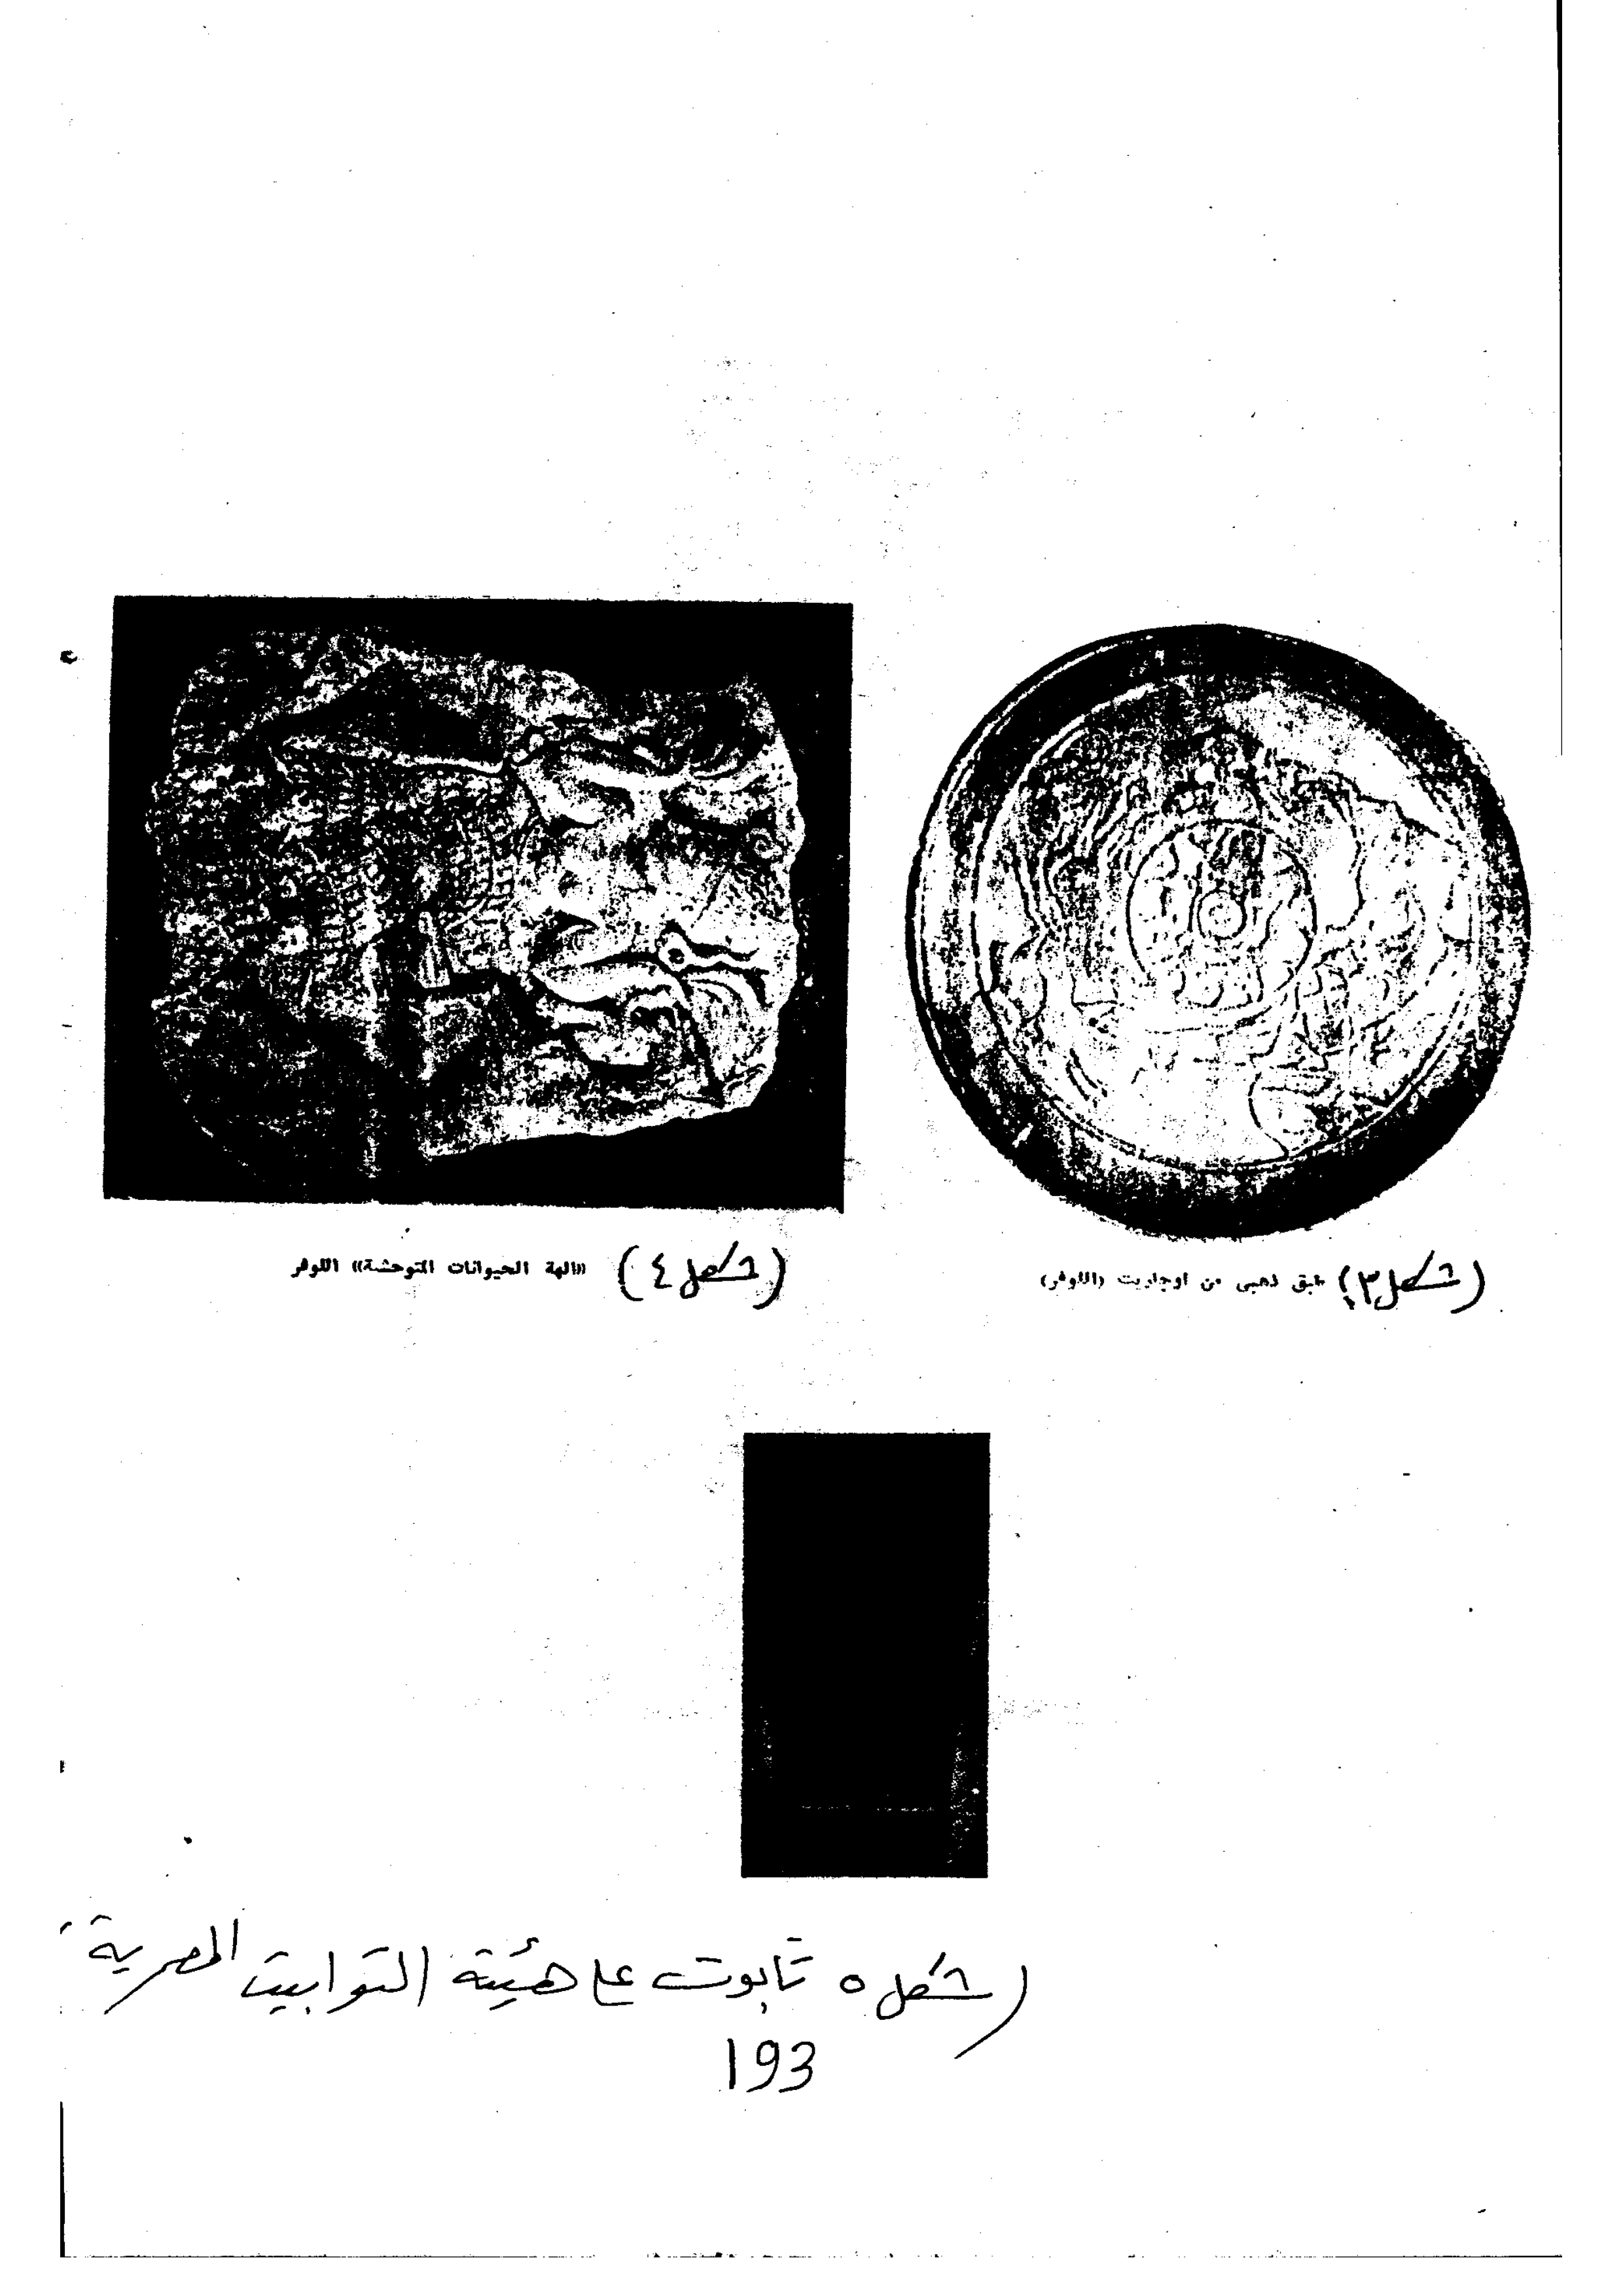 (شكل ٣) طبق ذهبى من اوجاريت (اللوفر)
(شكل ٤) «الهة الحيوانات المتوحشة» اللوفر
(شكل ٥ تابوت على هيئة التوابيت المصرية
193